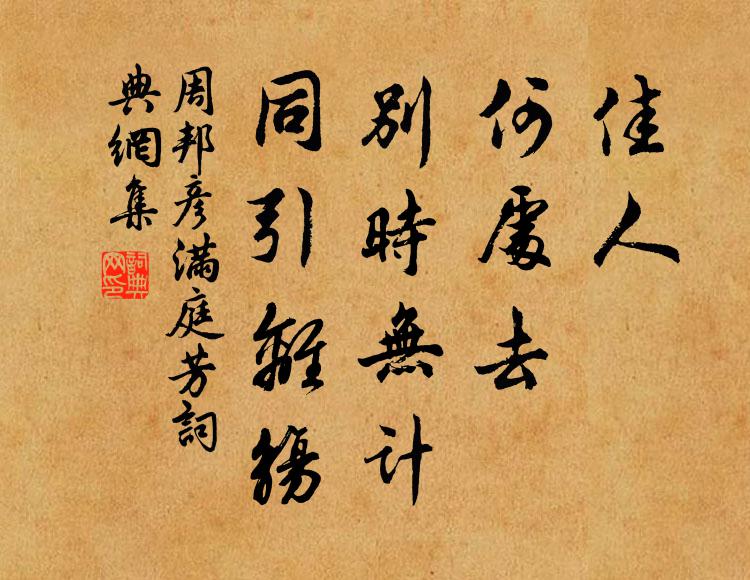 佳人
何處去
別時無計
同引離觴
周邦彥滿庭芳詞
典網集
詞典網印